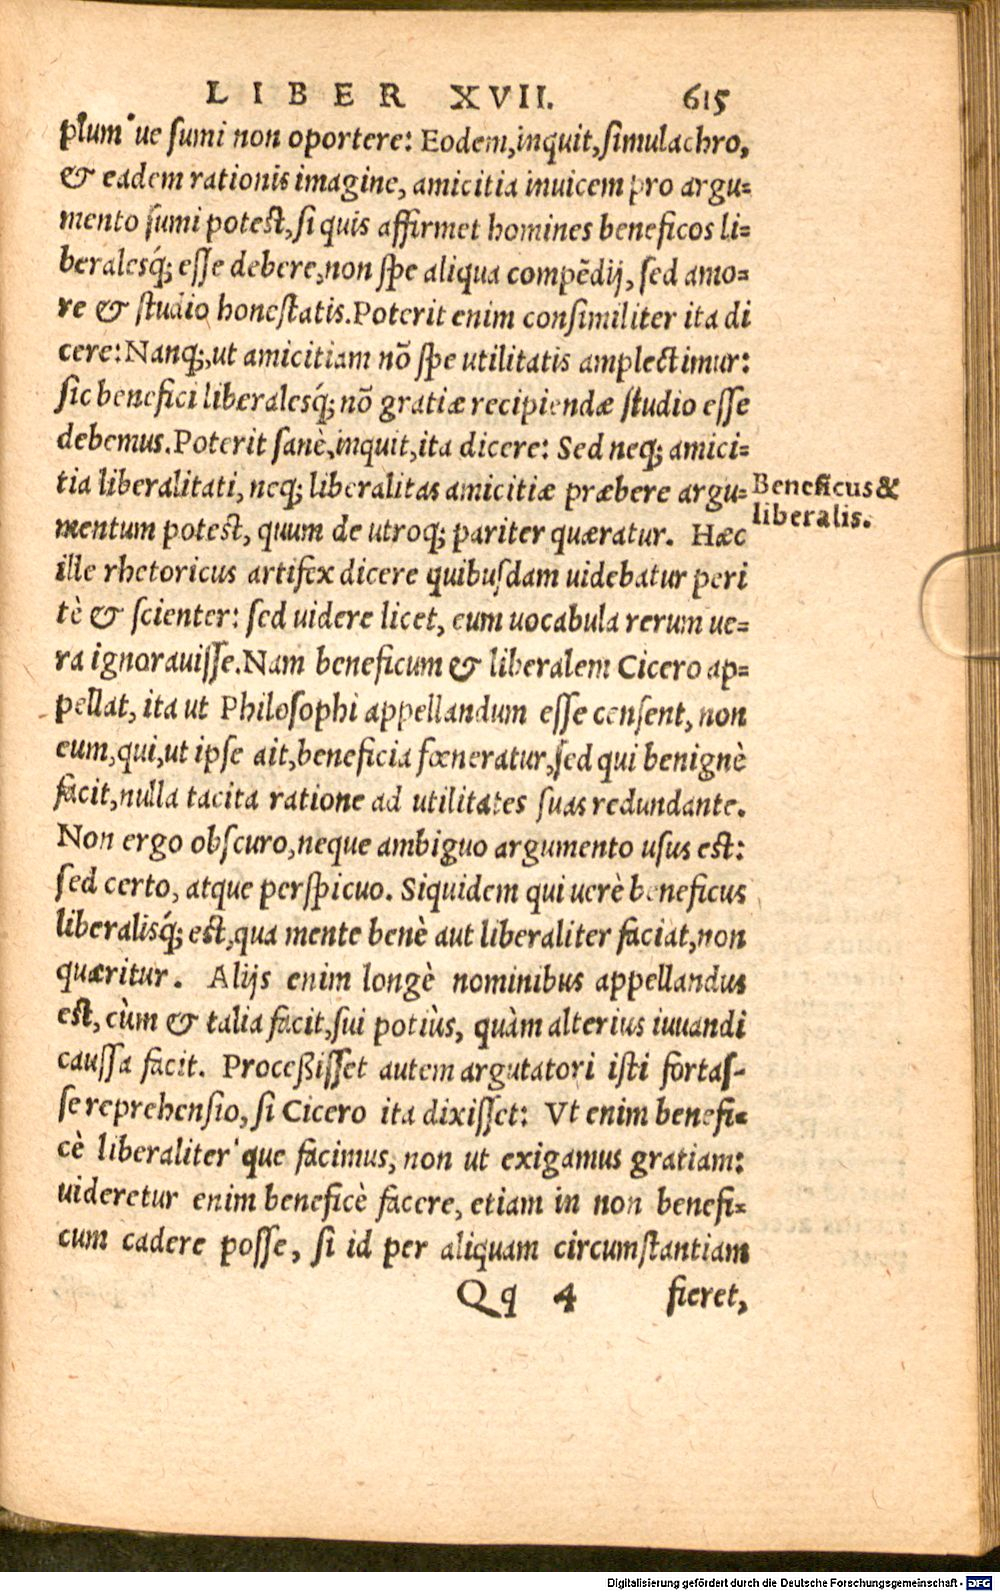 LIBER XVII. 615
plum've sumi non oportere: Eodem, inquit, simulachro,
& eadem rationis imagine, amicitia inuicem pro argu=
mento sumi potest, si quis affirmet homines beneficos li=
beralesq́; esse debere, non spe aliqua compẽdij, sed amo=
re & studio honestatis. Poterit enim consimiliter ita di
cere: Nanq;, ut amicitiam nõ spe utilitatis amplectimur:
sic benefici liberalesq́; nõ gratiæ recipiendæ studio esse
debemus. Poterit sanè, inquit, ita dicere: Sed neq; amici=
tia liberalitati, neq; liberalitas amicitiæ præbere argu=
mentum potest, quum de utroq; pariter quæratur. Hæc
Beneficus &
liberalis.
ille rhetoricus artifex dicere quibusdam uidebatur peri
tè & scienter: sed uidere licet, eum uocabula rerum ue=
ra ignorauisse. Nam beneficum & liberalem Cicero ap=
pellat, ita ut Philosophi appellandum esse censent, non
eum, qui, ut ipse ait, beneficia fœneratur, sed qui benignè
facit, nulla tacita ratione ad utilitates suas redundante.
Non ergo obscuro, neque ambiguo argumento usus est:
sed certo, atque perspicuo. Siquidem qui uerè beneficus
liberalisq́; est, qua mente benè aut liberaliter faciat, non
quæritur. Alijs enim longè nominibus appellandus
est, cùm & talia facit, sui potiùs, quàm alterius iuuandi
caussa facit. Proceßisset autem argutatori isti fortas-
se reprehensio, si Cicero ita dixisset: Vt enim benefi=
cè liberaliter'que facimus, non ut exigamus gratiam:
uideretur enim beneficè facere, etiam in non benefi=
cum cadere posse, si id per aliquam circumstantiam
Qq 4 fieret,
Digitalisierung gefördert durch die Deutsche Forschungsgemeinschaft - DFG